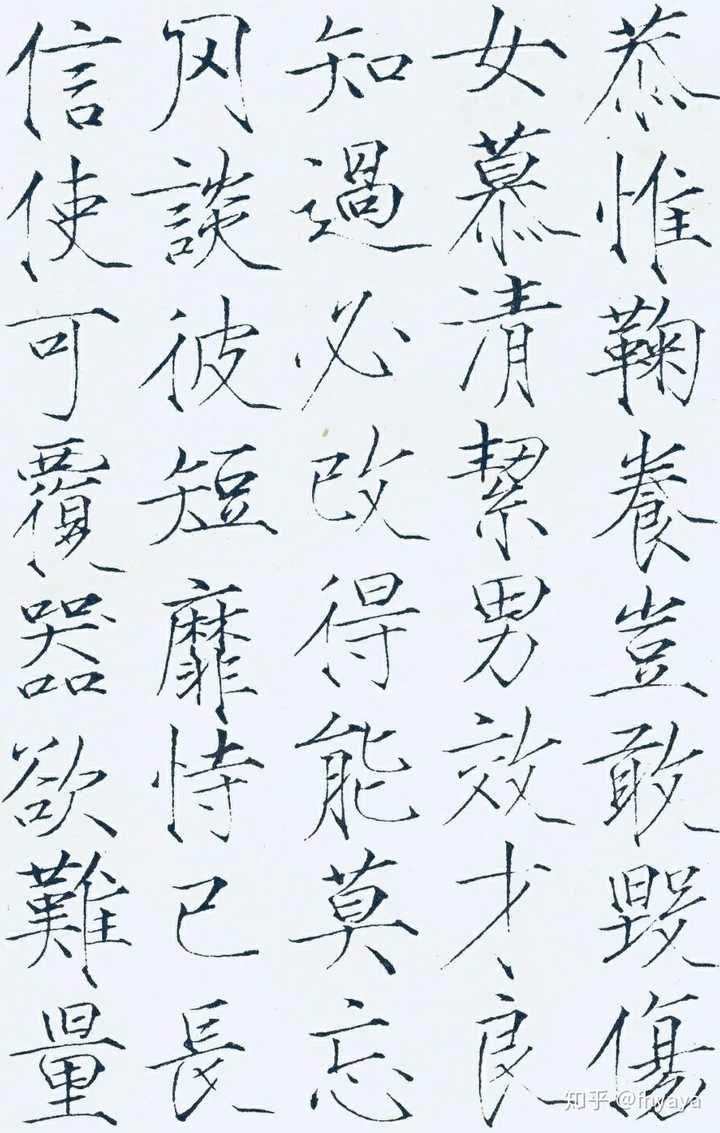 恭惟鞠養豈敢毀傷
女慕清絜男效才良
知過必改得能莫忘
罔談彼短靡恃己長
信使可覆器欲難量
知乎 @fhyaya